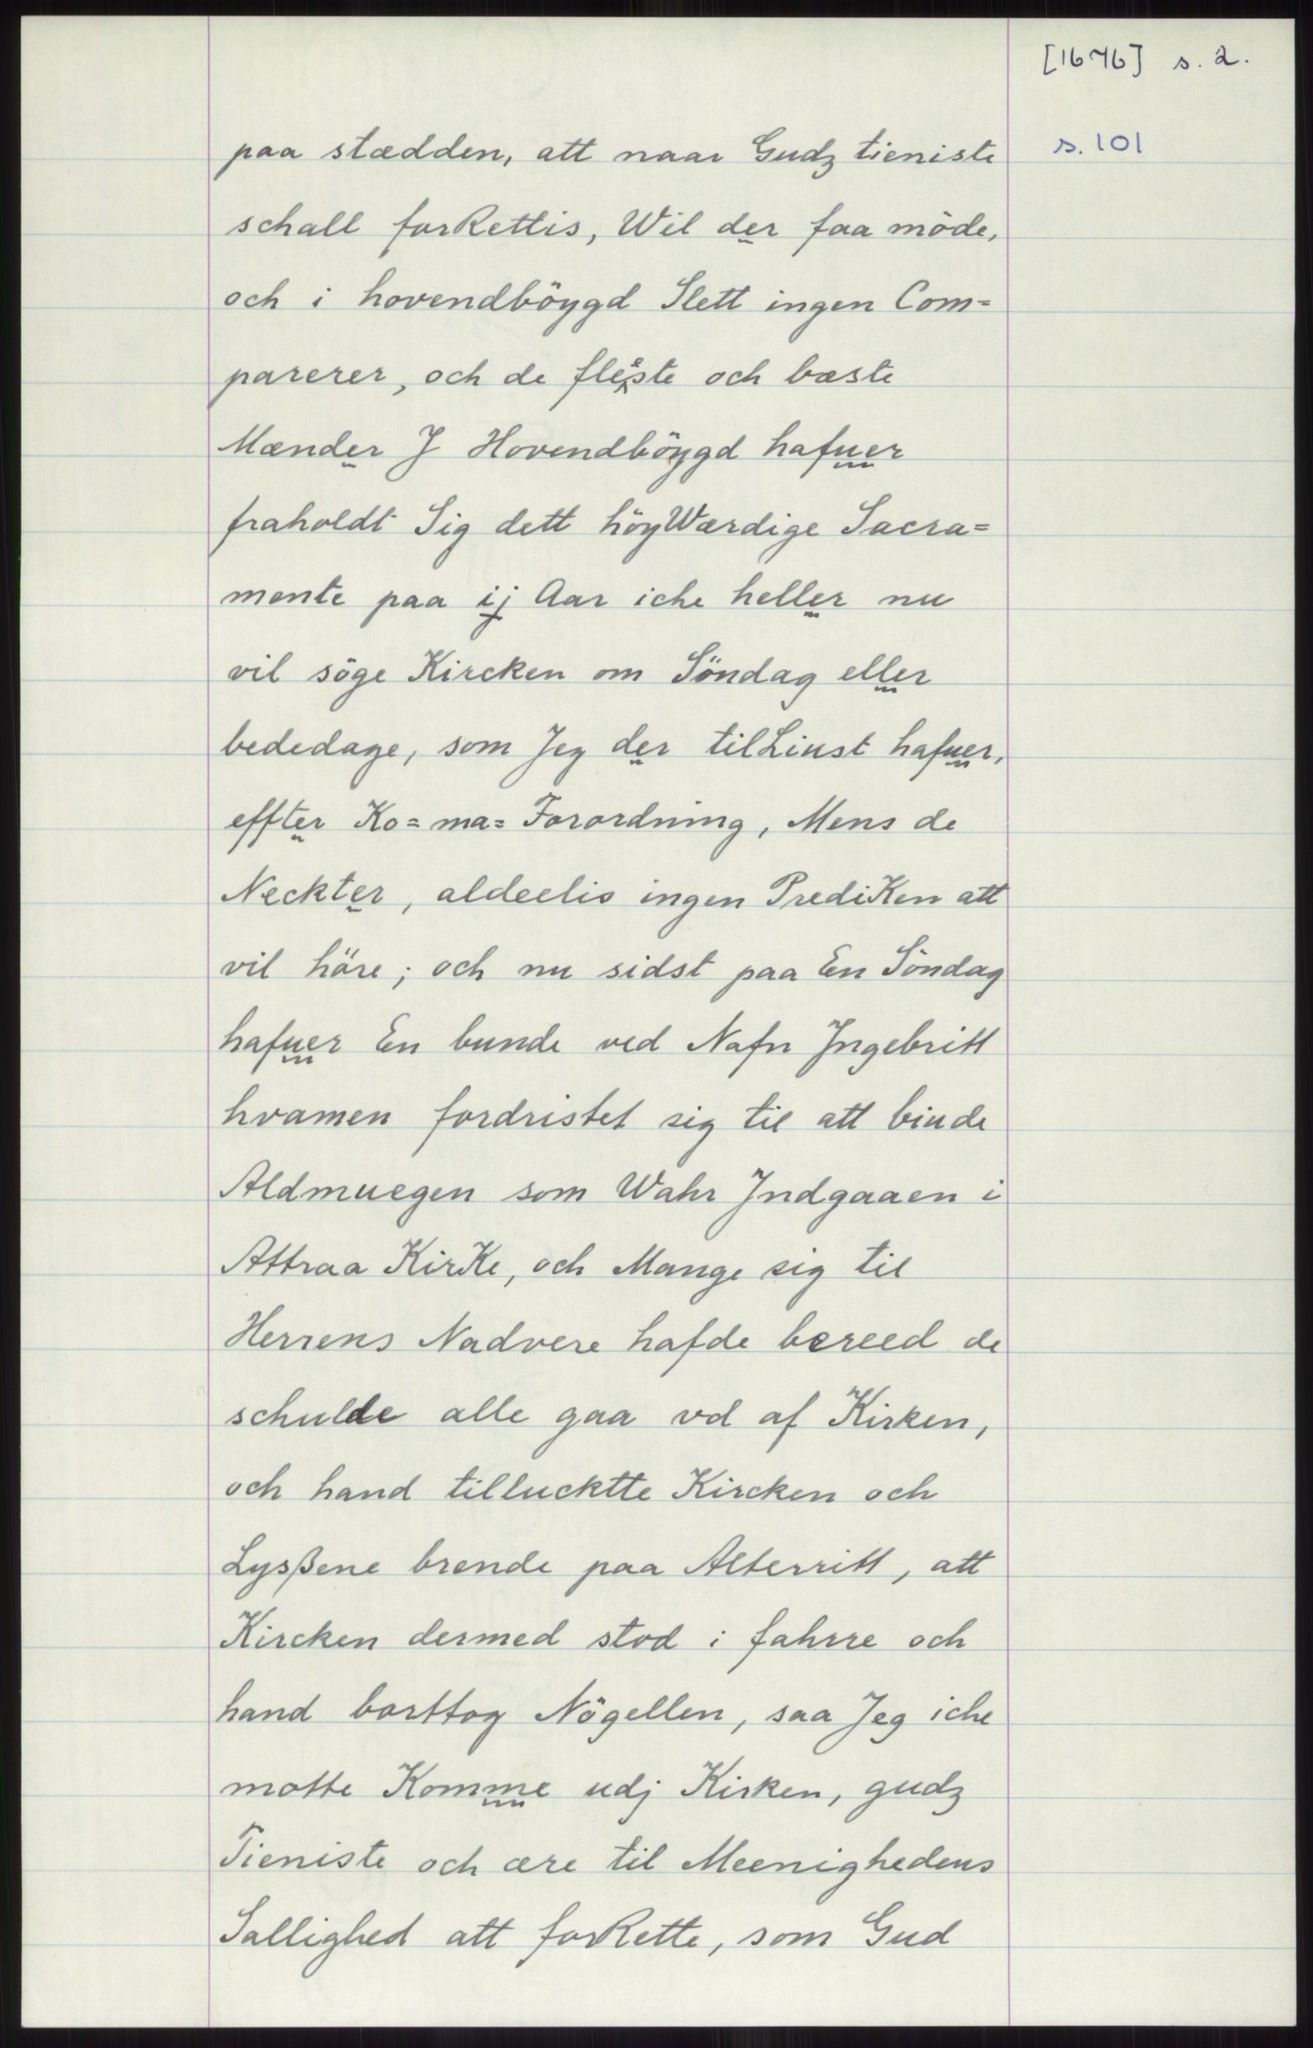 [1676] s. 2.
s. 101
paa stædden, att naar Gudz tieniste
schall forRettis, Wil der faa möde,
och i hovendböygd Slett ingen Com=
parerer, och de fleeste och bæste
Mænder J Hovendböygd hafuer
fraholdt Sig dett höyWærdige Sacra=
mente paa ij Aar iche heller nu
vil söge Kircken om Söndag eller
bededage, som Jeg der tilLiust hafuer,
effter Ko= ma= Forordning, Mens de
Neckter, aldeelis ingen PrediKen att
vil höre; och nu sidst paa En Söndag
hafuer En bunde ved Nafn Jngebritt
hvamen fordristet sig til att biude
Aldmuegen som Wahr Jndgaaen i
Attraa KirKe, och Mange sig til
Herrens Nadvere hafde bereed de
schulde alle gaa vd af Kirken,
och hand tillucktte Kircken och
Lysßene brende paa Alterritt, att
Kircken dermed stod i fahrre och
hand borttog Nögellen, saa Jeg iche
motte Komme udj Kirken, gudz
Tieniste och ære til Meenighedens
Sallighed att forRette, som Gud